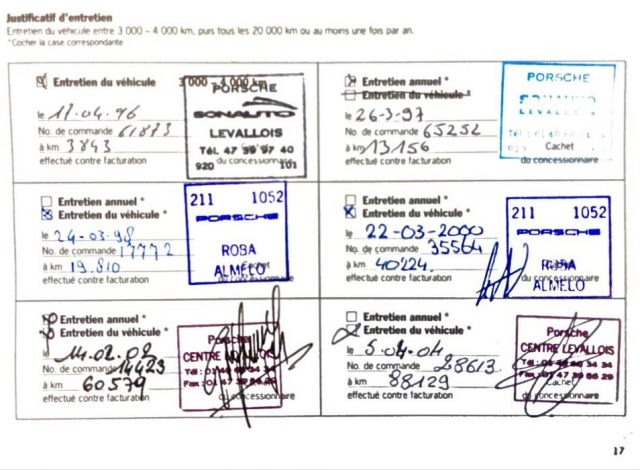 Justificatif d'entretien
Entretien du véhicule entre 3 000 – 4 000 km, puis tous les 20 000 km ou au moins une fois par an.
*Cocher la case correspondante
Entretien du véhicule 3 000 - 4 000 km
le 17.04.96
No. de commande 61873
à km 3843
effectué contre facturation
PORSCHE
SONAUTO
LEVALLOIS
Tél. 47 39 97 40
920 101
du concessionnaire
Entretien annuel *
Entretien du véhicule *
le 26-3-97
No. de commande 65252
à km 13156
effectué contre facturation
PORSCHE
SONAUTO
LEVALLOIS
Cachet
du concessionnaire
Entretien annuel *
Entretien du véhicule *
le 24-03-98
No. de commande 17772
à km 19.810
effectué contre facturation
211 1052
PORSCHE
ROBA
ALMELO
Cachet
du concessionnaire
Entretien annuel *
Entretien du véhicule *
le 22-03-2000
No. de commande 35564
à km 40224.
effectué contre facturation
211 1052
PORSCHE
ROBA
ALMELO
du concessionnaire
Entretien annuel *
Entretien du véhicule *
le 14.02.02
No. de commande 14423
à km 60579
effectué contre facturation
Porsche
CENTRE LEVALLOIS
Tél : 01 46 88 34 34
Fax : 01 47 39 56 29
du concessionnaire
Entretien annuel *
Entretien du véhicule *
le 5.04.04
No. de commande 28613
à km 88129
effectué contre facturation
Porsche
CENTRE LEVALLOIS
Fax : 01 47 39 56 29
Cachet
du concessionnaire
17